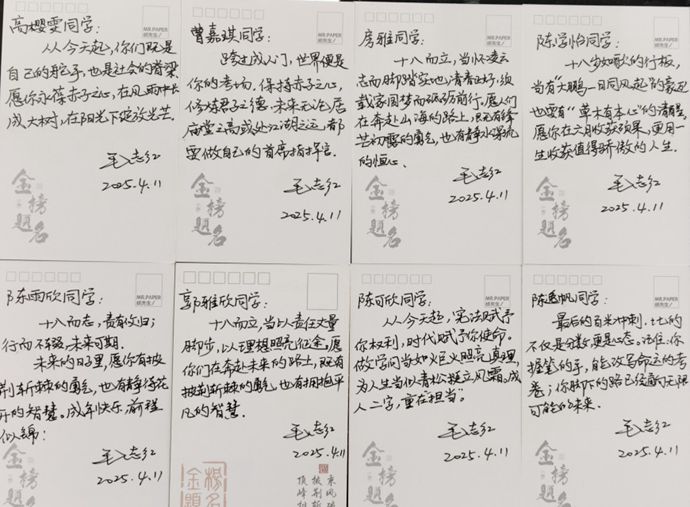 高樱雯同学:
从今天起,你们既是
自己的舵手,也是社会的脊梁
愿你永葆赤子之心,在风雨中长
成大树,在阳光下绽放光芒
毛志红
2025.4.11
金榜题名
MR.PAPER
曹嘉琪同学:
跨过成人门,世界便是
你的考场,保持赤子之心,
修炼君子之德,未来无论居
庙堂之高或处江湖之远,都
要做自己的首席指挥官.
毛志红
2025.4.11
金榜题名
MR.PAPER
房雅同学:
十八而立,当怀凌云
志而脚踏实地,清春正好,须
载家国梦而砥砺前行,愿你们
在奔赴山海的路上,既有锋
芒初露的勇气,也有静水深流
的恒心.
毛志红
2025.4.11
金榜题名
MR.PAPER
陈学怡同学:
十八岁如歌的行板,
当有"大鹏一日同风起"的豪迈
也要有"草木有本心"的清醒
愿你在六月收获硕果,更用一
生收获值得骄傲的人生.
毛志红
2025.4.11
金榜题名
MR.PAPER
陈雨欣同学:
十八而志,责有攸归;
行而不辍,未来可期.
未来的日子里,愿你有披
荆斩棘的勇气,也有静待花
开的智慧.成年快乐,前程
似锦!
毛志红
2025.4.11
金榜题名
MR.PAPER
郭雅欣同学:
十八而立,当以责任丈量
脚步,以理想照亮征途,愿
你们在奔赴未来的路上,既有
披荆斩棘的勇气,也有拥抱平
凡的智慧.
毛志红
2025.4.11
金榜题名
陈可欣同学:
从今天起,宪法赋予
你权利,时代赋予你使命.
做学问当如炬火照亮真理
为人生当似青松挺立风霜.成
人二字,重在担当.
毛志红
2025.4.11
金榜题名
MR.PAPER
陈逸帆同学:
最后的百米冲刺,比的
不仅是分数,更是心态.记住,你
握笔的手,能改写命运的考
卷;你脚下的路已经蔚无限
可能的未来.
毛志红
2025.4.11
金榜题名
MR.PAPER